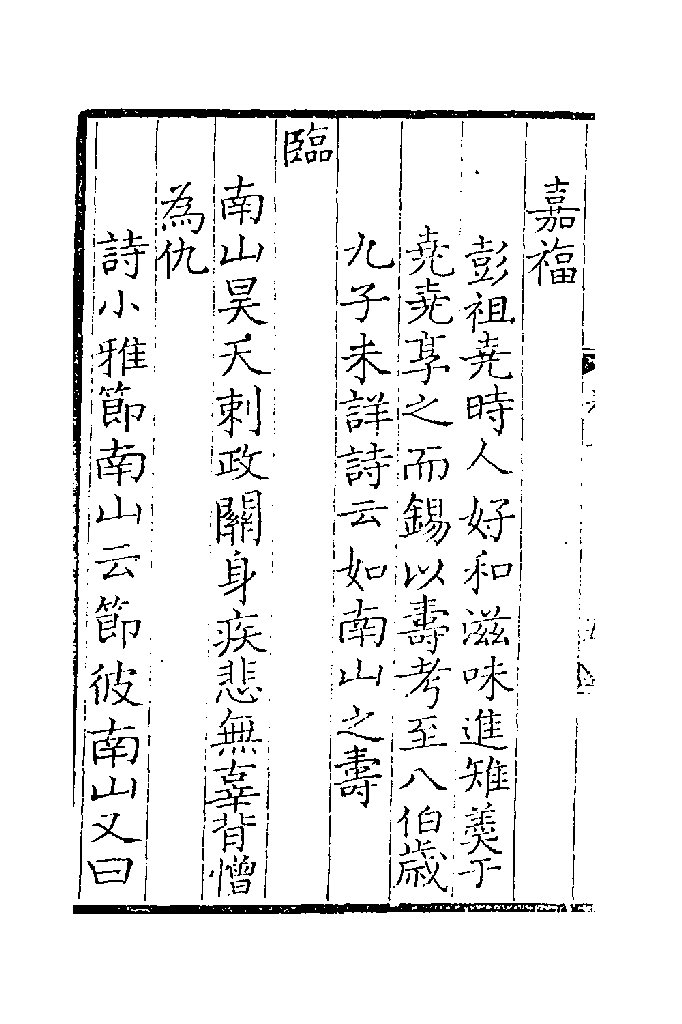 嘉福
彭祖堯時人好和滋味進雉羹于
堯堯享之而錫以壽考至八伯歲
九子未詳詩云如南山之壽
臨
南山昊天刺政關身疾悲無辜背憎
為仇
詩小雅節南山云節彼南山又曰